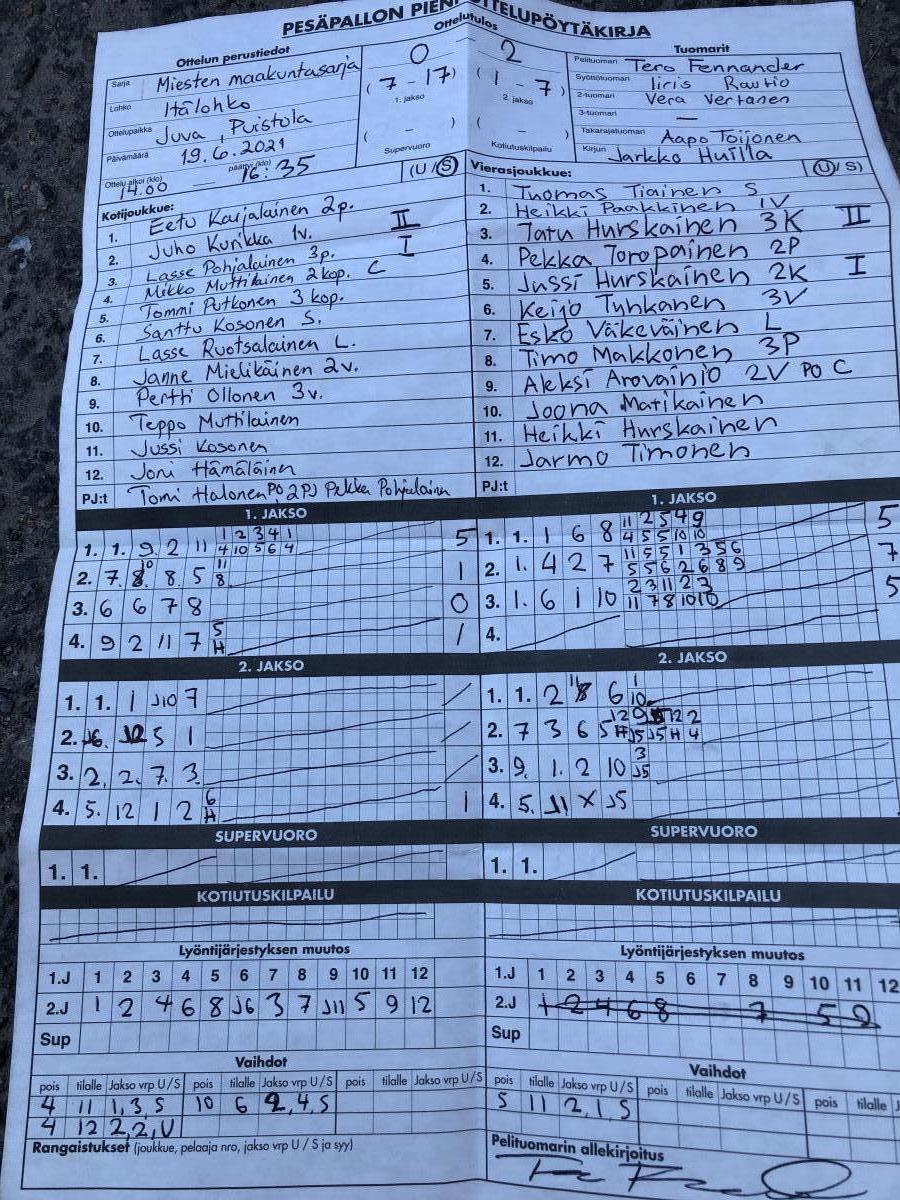 PESÄPALLON PIENOTTELUPÖYTÄKIRJA
Ottelun perustiedot
Sarja Miesten maakuntasarja
Lohko Itälohko
Ottelupaikka Juva, Puistola
Päivämäärä 19.6.2021
Ottelu alkoi (klo) 14.00 päättyi (klo) 16:35
Ottelutulos
0 - 2
(7 - 17) (1 - 7)
1. jakso 2. jakso
( - ) ( - )
Supervuoro Kotiutuskilpailu
Tuomarit
Pelituomari Tero Fennander
Syöttötuomari Iiris Rautio
2-tuomari Vera Vertanen
3-tuomari —
Takarajatuomari Aapo Toijonen
Kirjuri Jarkko Huilla
Kotijoukkue: (U/S)
1. Eetu Karjalainen 2p.
2. Juho Kurikka 1v. II
3. Lasse Pohjalainen 3p. I
4. Mikko Muttilainen 2kop. C
5. Tommi Putkonen 3 kop.
6. Santtu Kosonen S.
7. Lasse Ruotsalainen L.
8. Janne Mielikäinen 2v.
9. Pertti Ollonen 3v.
10. Teppo Muttilainen
11. Jussi Kosonen
12. Joni Hämäläinen
PJ:t Tomi Halonen PO 2PJ Pekka Pohjalainen
Vierasjoukkue: (U/S)
1. Tuomas Tiainen S
2. Heikki Paakkinen 1V
3. Tatu Hurskainen 3K II
4. Pekka Toropainen 2P
5. Jussi Hurskainen 2K I
6. Keijo Tynkanen 3V
7. Esko Väkeväinen L
8. Timo Makkonen 3P
9. Aleksi Arovainio 2V PO C
10. Joona Matikainen
11. Heikki Hurskainen
12. Jarmo Timonen
PJ:t
1. JAKSO
1. 1. 9 2 11 1 2 3 4 1 5
4 10 5 6 4
2. 7. 8 8 5 11 1
10 8
3. 6 6 7 8 0
4. 9 2 11 7 5 1
H
2. JAKSO
1. 1. 1 J10 7 /
2. J6. 5 1 /
3. 2. 2. 7. 3. /
4. 5. 12 1 2 6 1
H
SUPERVUORO
1. 1.
KOTIUTUSKILPAILU
1. JAKSO
1. 1. 1 6 8 11 2 5 4 9 5
4 5 5 10 10
2. 1. 4 2 7 11 5 5 1 3 5 6 7
5 5 6 2 6 8 9
3. 1. 6 1 10 2 3 11 2 3 5
11 7 8 10 10
4.
2. JAKSO
1. 1. 2 8 6 1
11 10
2. 7 3 6 5 12 9 12 2
H J5 J5 H 4
3. 9. 1. 2 10 3
J5
4. 5. J1 X J5
SUPERVUORO
1. 1.
KOTIUTUSKILPAILU
Lyöntijärjestyksen muutos
1.J 1 2 3 4 5 6 7 8 9 10 11 12
2.J 1 2 4 6 8 J6 3 7 J11 5 9 12
Sup
Vaihdot
pois tilalle Jakso vrp U/S pois tilalle Jakso vrp U/S pois tilalle Jakso vrp U/S
4 11 1,3,S 10 6 2,4,S
4 12 2,2,U
Rangaistukset (joukkue, pelaaja nro, jakso vrp U / S ja syy)
Lyöntijärjestyksen muutos
1.J 1 2 3 4 5 6 7 8 9 10 11 12
2.J 1 2 4 6 8 7 5 9
Sup
Vaihdot
pois tilalle Jakso vrp U/S pois tilalle Jakso vrp U/S pois tilalle J
5 11 2,1,S
Pelituomarin allekirjoitus